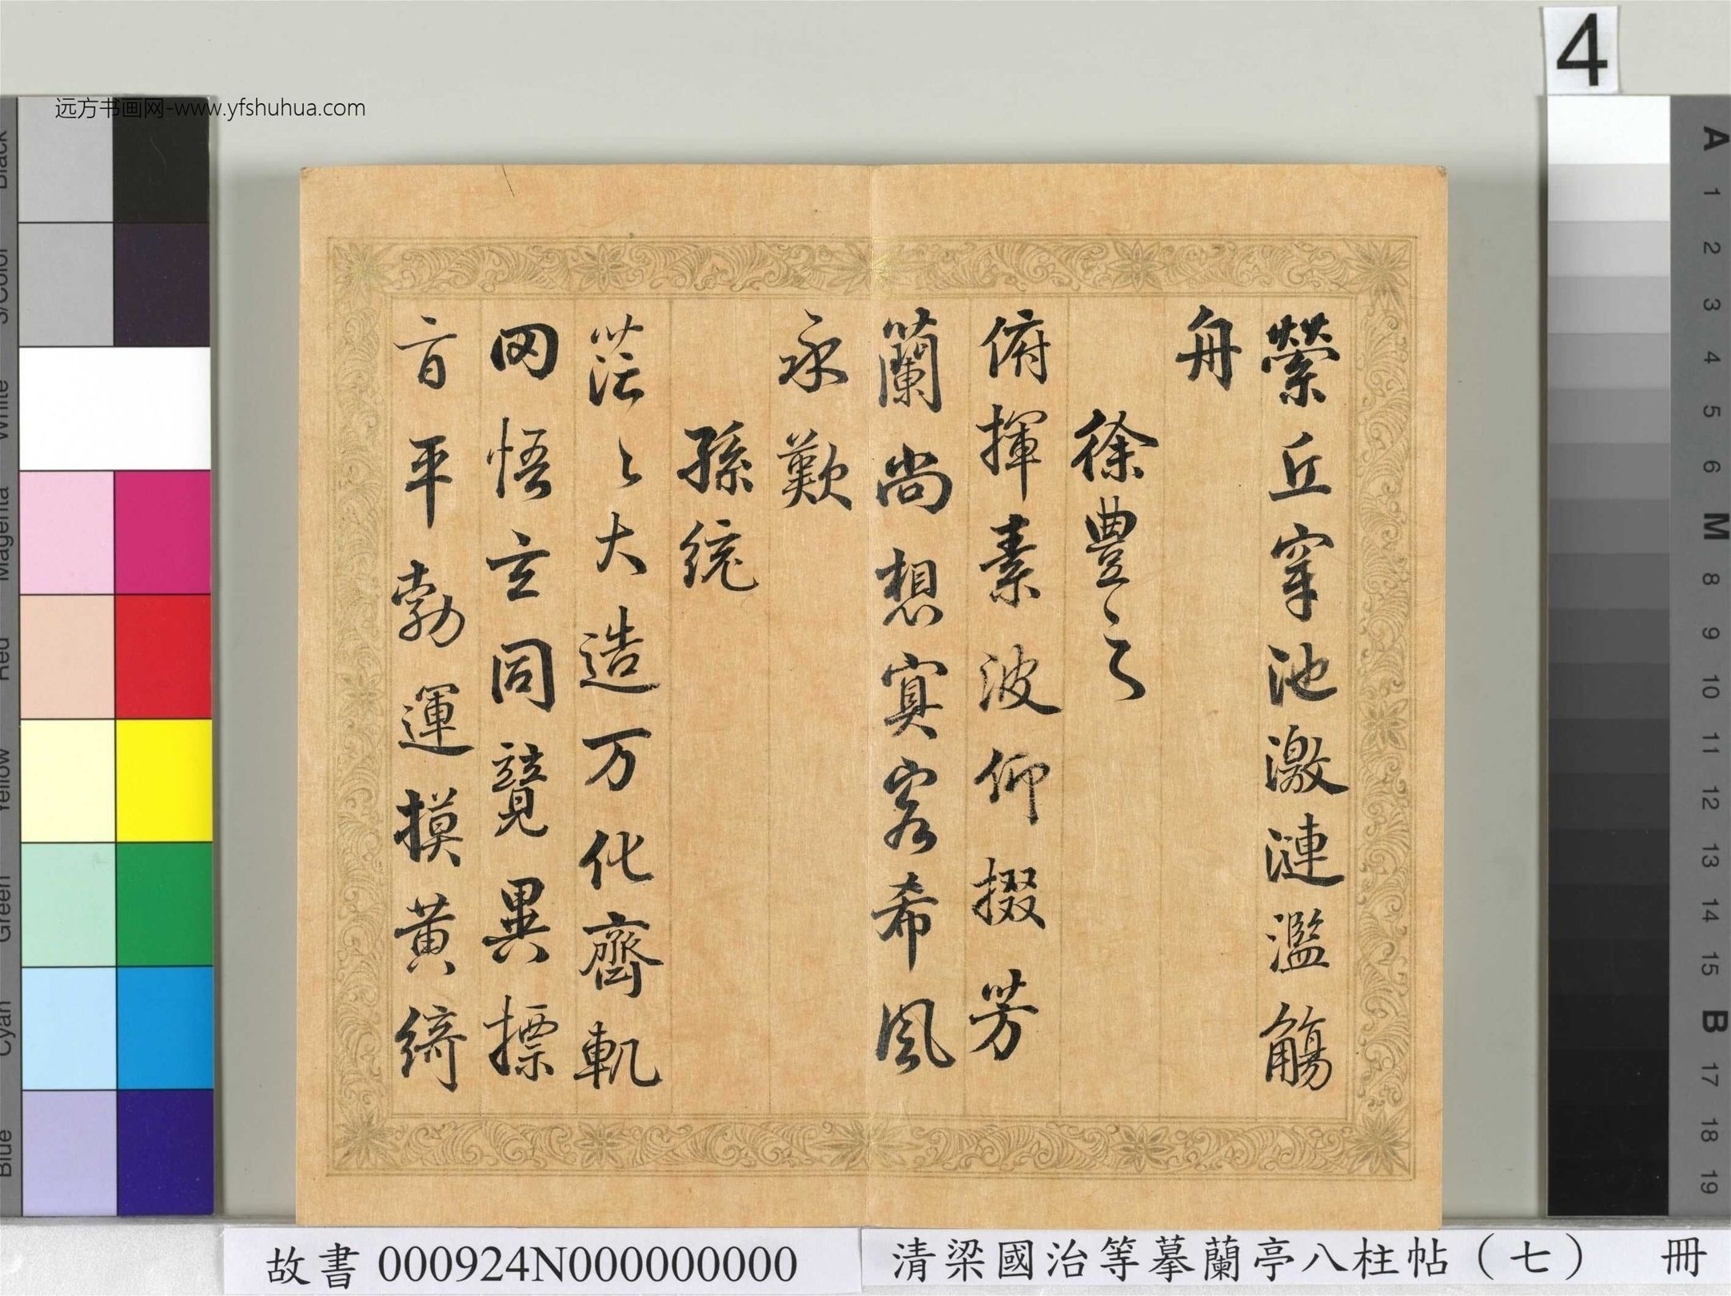 縈丘穿池激漣濫觴
舟
徐豊之
俯揮素波仰掇芳
蘭尚想寘客希風
永歎
孫統
茫〻大造万化齊軌
罔悟玄同競異摽
音平勃運摸黄綺
远方书画网-www.yfshuhua.com
4
Black
3/Color
White
Magenta
Red
Yellow
Green
Cyan
Blue
A
1
2
3
4
5
6
M
8
9
10
11
12
13
14
15
B
17
18
19
故書 000924N000000000
清梁國治等摹蘭亭八柱帖（七） 冊